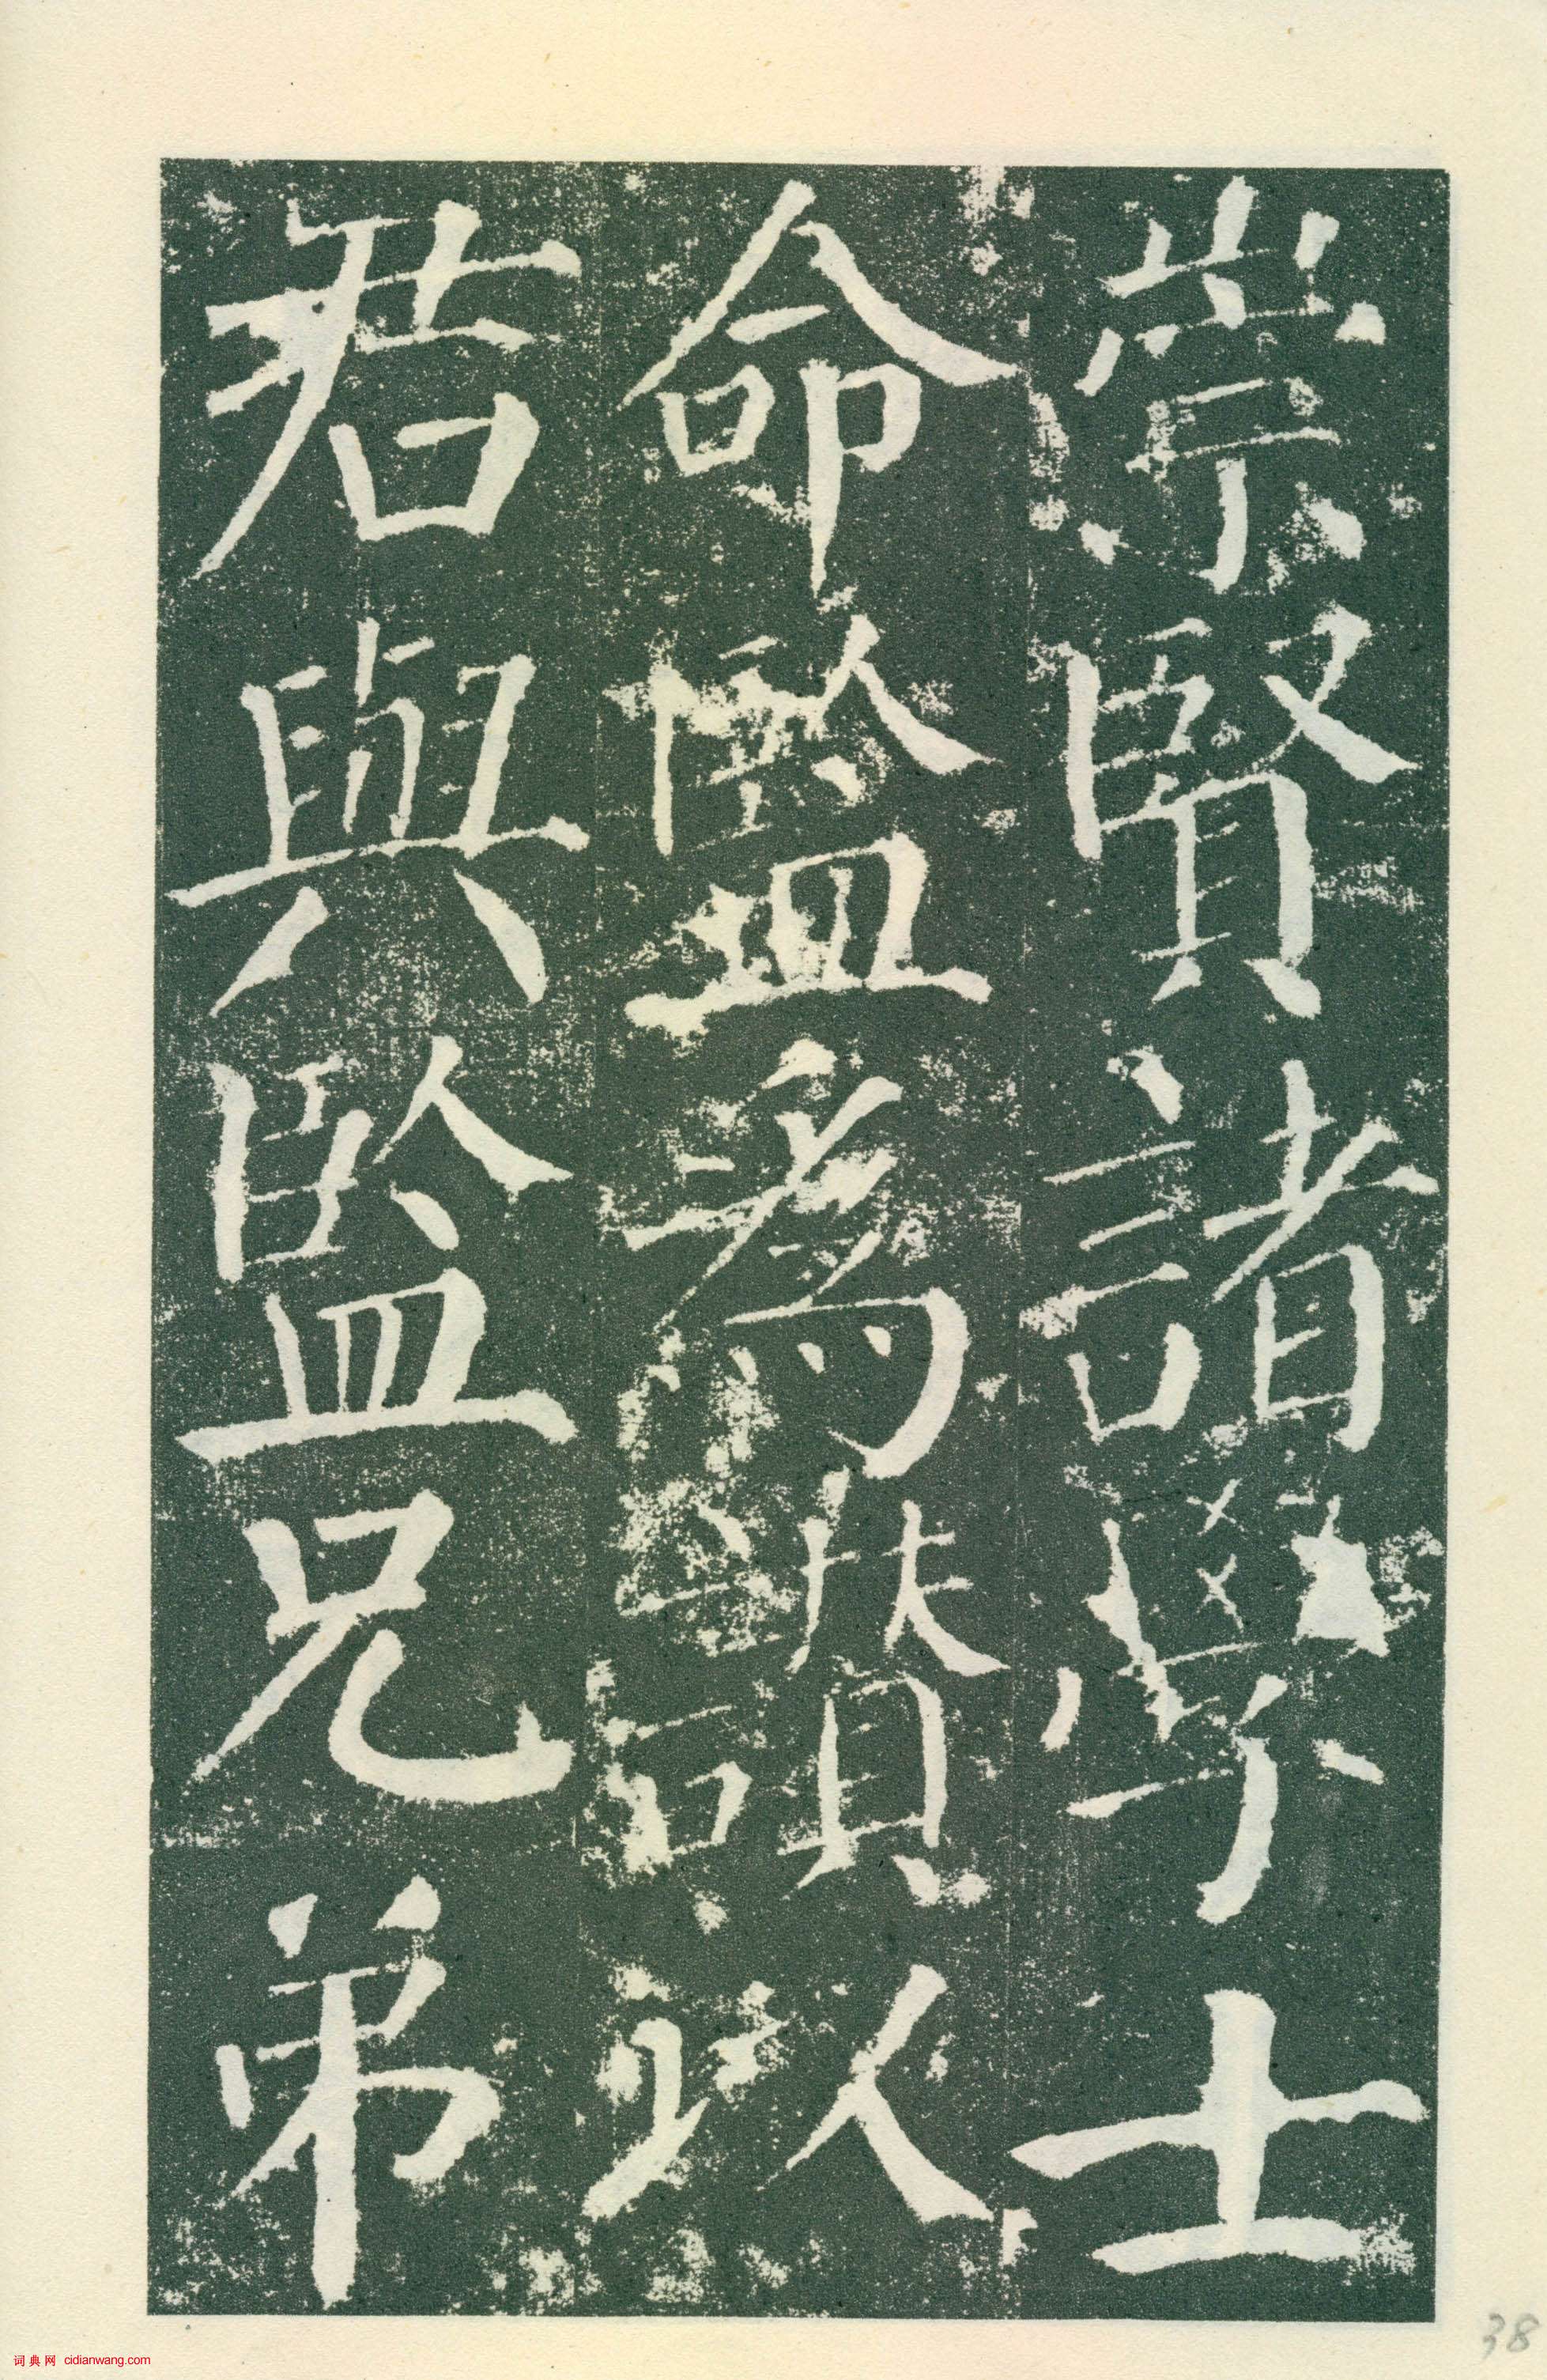 崇賢諸學士
命監爲讃以
君與監兄弟
38
词典网 cidianwang.com